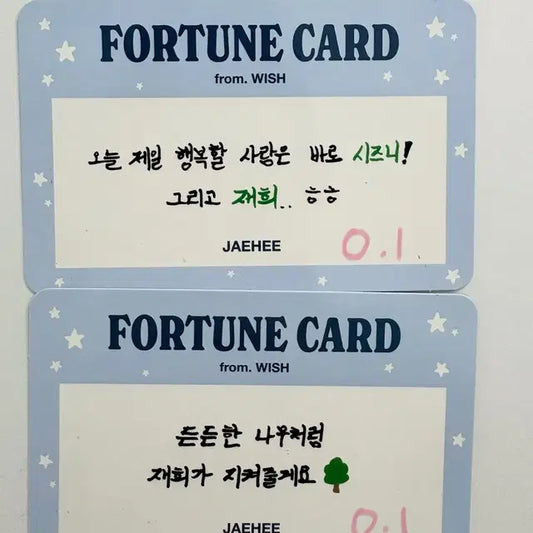 FORTUNE CARD
from. WISH
오늘 제일 행복할 사람은 바로 시즈니!
그리고 재희.. ㅎㅎ
JAEHEE
0.1
FORTUNE CARD
from. WISH
든든한 나무처럼
재희가 지켜줄게요
JAEHEE
0.1